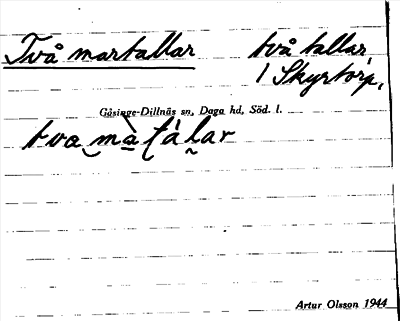 Två martallar
två tallar
i Skyrtorp.
Gåsinge-Dillnäs sn, Daga hd, Söd. l.
Artur Olsson 1944